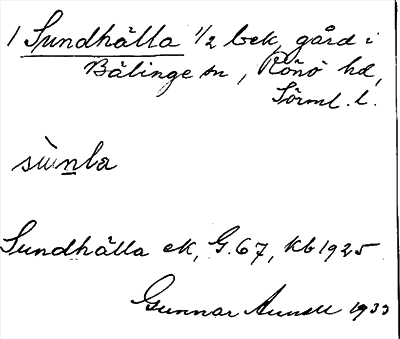 1 Sundhälla 1/2 bek, gård i
Bälinge sn, Rönö hd,
Sörml. l.
sùnla
Sundhälla ek, G. 67, kb 1925
Gunnar 1933